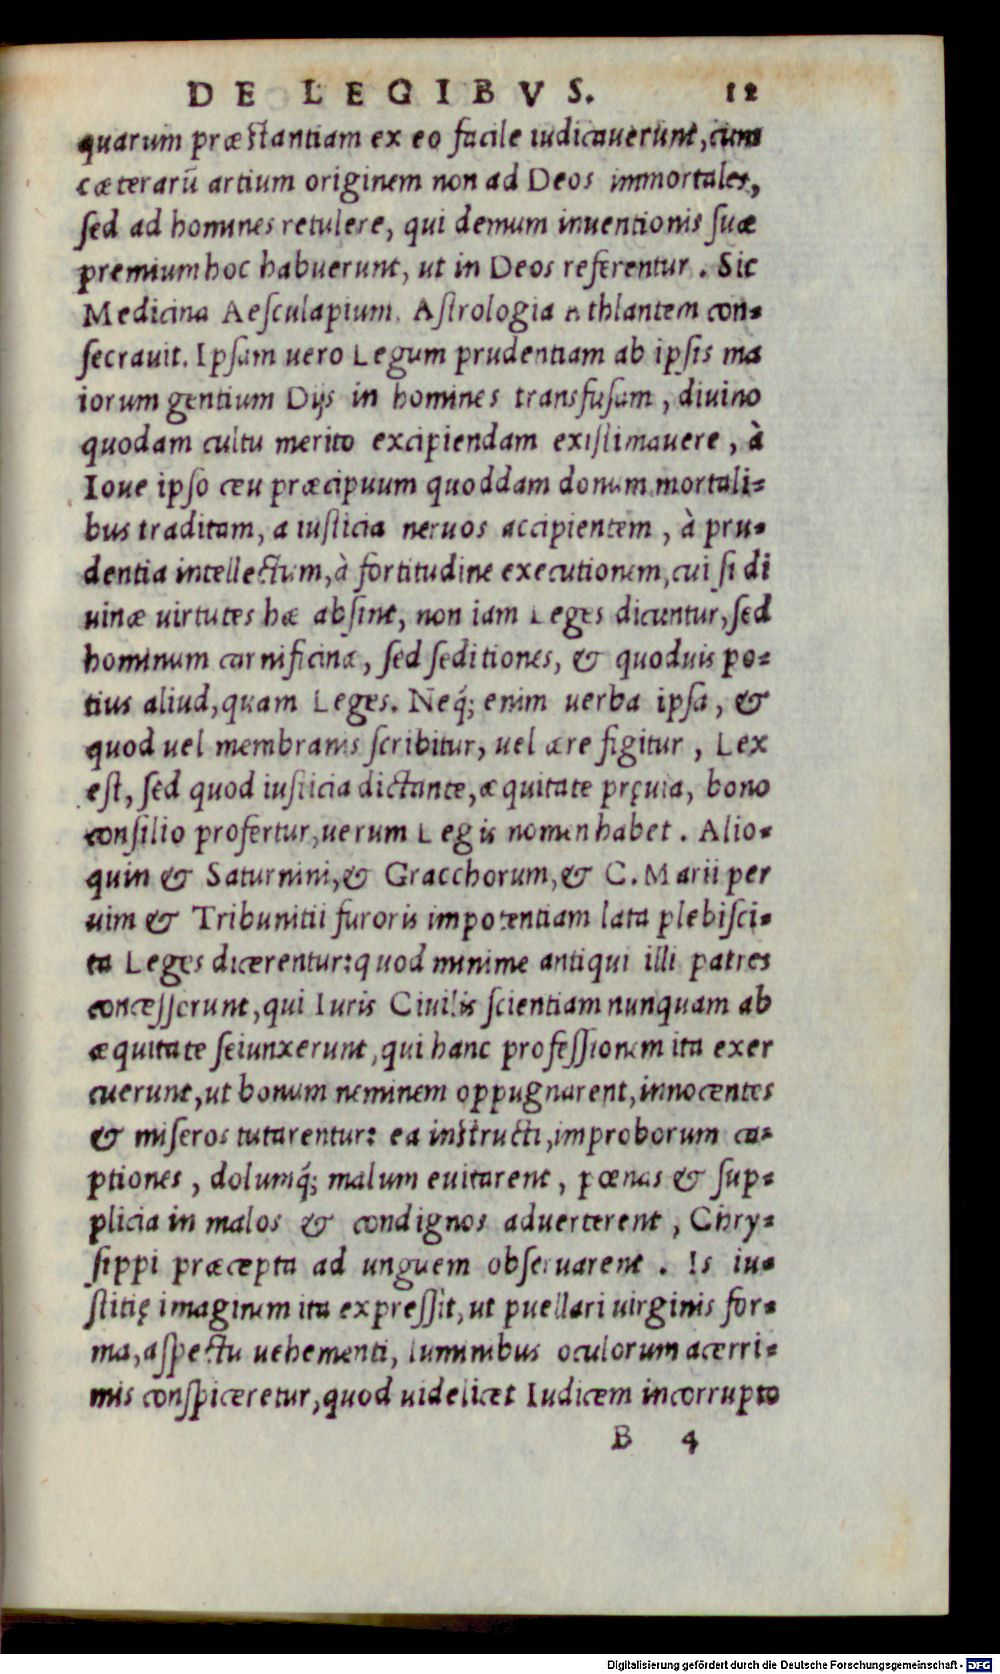 DE LEGIBVS. 12
quarum præstantiam ex eo facile iudicauerunt, cum
cæterarū artium originem non ad Deos immortales,
sed ad homines retulere, qui demum inuentionis suæ
premium hoc habuerunt, ut in Deos referentur. Sic
Medicina Aesculapium, Astrologia Athlantem con-
secrauit. Ipsam uero Legum prudentiam ab ipsis ma
iorum gentium Dijs in homines transfusam, diuino
quodam cultu merito excipiendam existimauere, à
Ioue ipso ceu præcipuum quoddam donum mortali-
bus traditam, a iusticia neruos accipientem, à pru-
dentia intellectum, à fortitudine executionem, cui si di
uinæ uirtutes hæ absint, non iam Leges dicuntur, sed
hominum carnificina, sed seditiones, & quoduis po-
tius aliud, quam Leges. Neq́; enim uerba ipsa, &
quod uel membranis scribitur, uel ære figitur, Lex
est, sed quod iusticia dictante, æquitate pręuia, bono
consilio profertur, uerum Legis nomen habet. Alio-
quin & Saturnini, & Gracchorum, & C. Marii per
uim & Tribunitii furoris impotentiam lata plebisci-
ta Leges dicerentur: quod minime antiqui illi patres
concesserunt, qui Iuris Ciuilis scientiam nunquam ab
æquitate seiunxerunt, qui hanc professionem ita exer
cuerunt, ut bonum neminem oppugnarent, innocentes
& miseros tutarentur: ea instructi, improborum ca-
ptiones, dolumq́; malum euitarent, pœnas & sup-
plicia in malos & condignos aduerterent, Chry-
sippi præcepta ad unguem obseruarent. Is iu-
stitię imaginem ita expressit, ut puellari uirginis for-
ma, aspectu uehementi, luminibus oculorum acerri-
mis conspiceretur, quod uidelicet Iudicem incorrupto
B 4
Digitalisierung gefördert durch die Deutsche Forschungsgemeinschaft - DFG